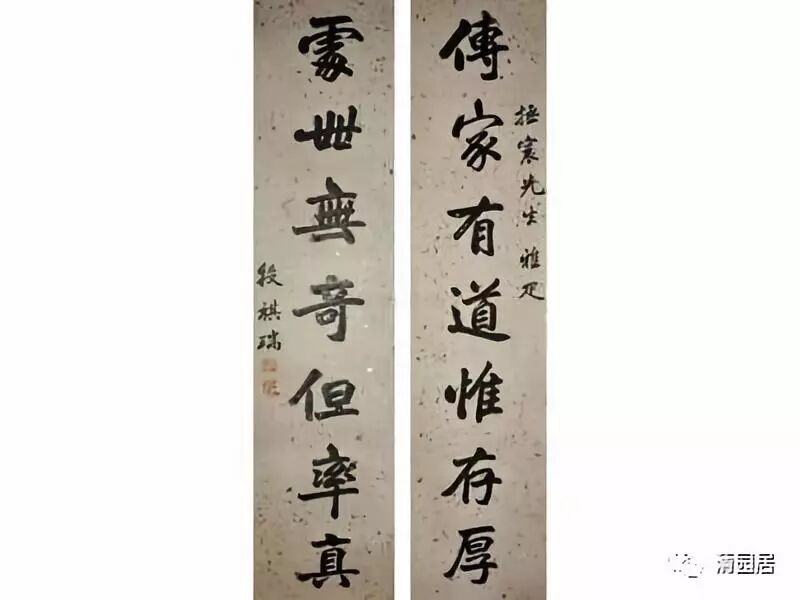 先生 雅
傳家有道惟存厚
處世無奇但率真
段祺瑞
园居